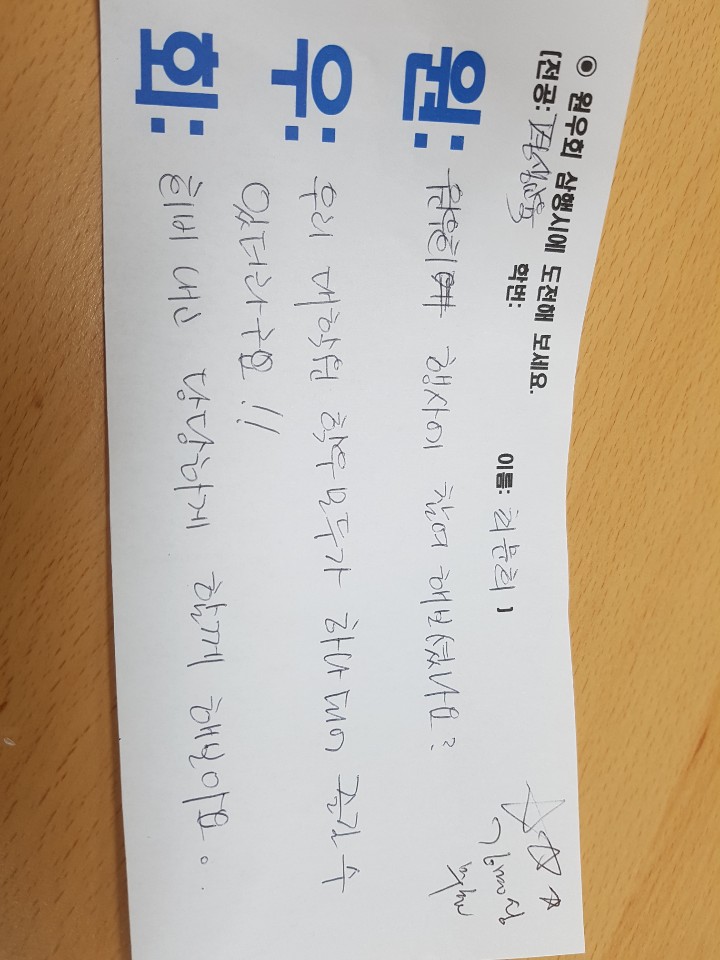 ◉ 원우회 삼행시에 도전해 보세요.
[전공: 학번: 이름: 최윤희 ]
원: 원우회 행사에 참여 해보셨나요?
우: 우리 대학원 학우 모두가 하나 되어 즐길 수
있더라구요!!
회: 회비 내고 당당하게 함께 해보아요.